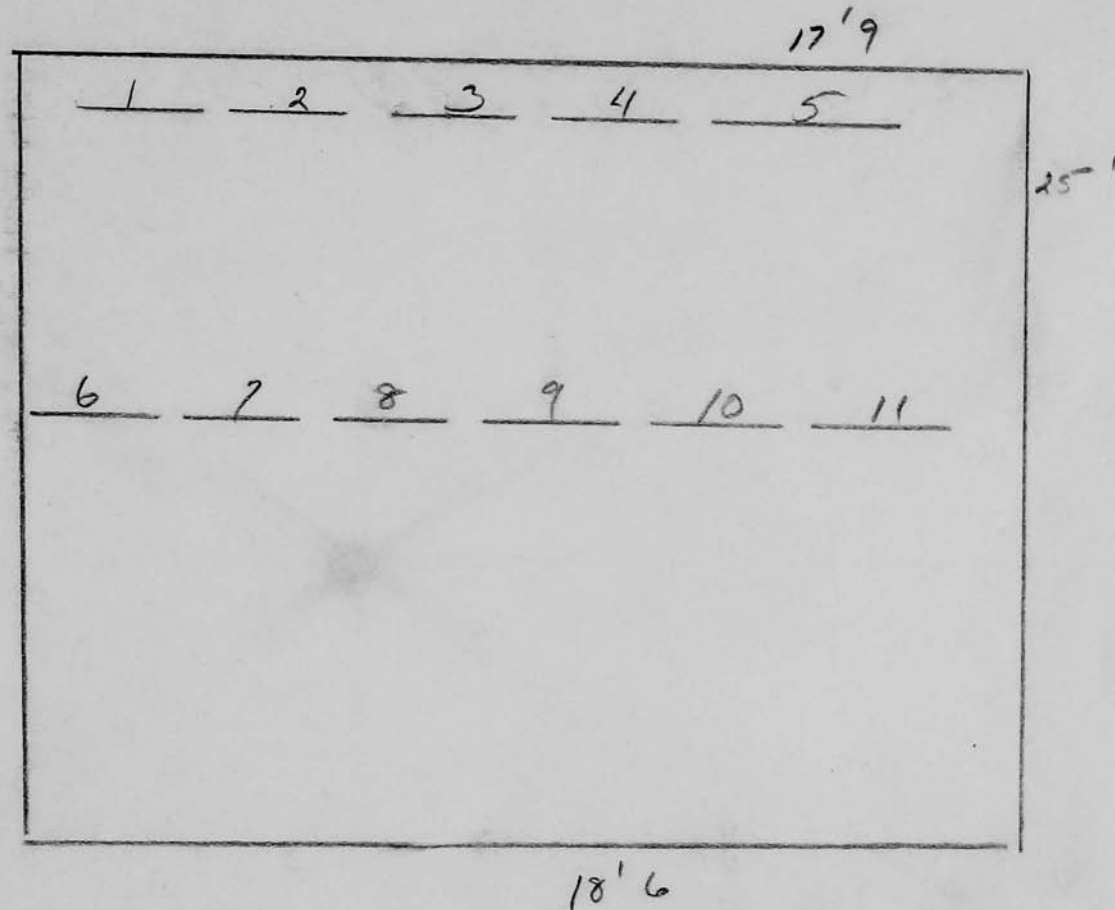 17'9
1 2 3 4 5
25-'
6 7 8 9 10 11
18'6